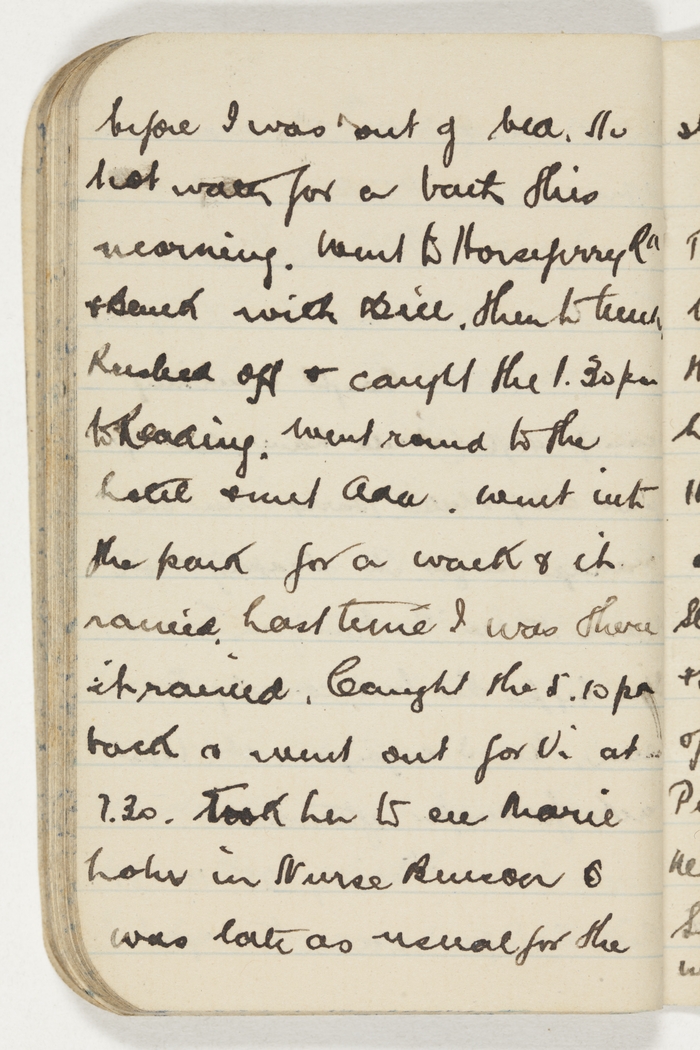 before I was out of bed. No
hot water for a bath this
morning. Went to Horseferry Rd
& back with Bill, then to lunch
Rushed off & caught the 1.30 pm
to Reading. Went round to the
hotel & met Ada. Went into
the park for a walk & it
rained. Last time I was there
it rained. Caught the 5.10 pm
back & went out for Vi at
7.30. Took her to see Marie
Lohr in Nurse Benson &
was late as usual for the